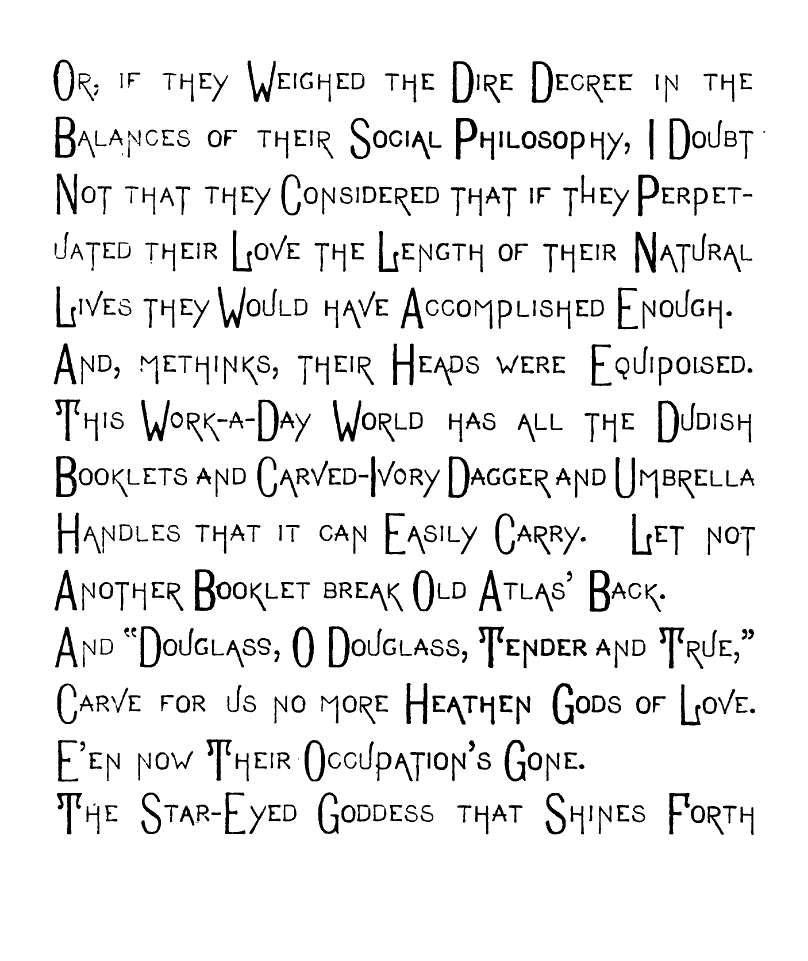 Or, if they Weighed the Dire Decree in the
Balances of their Social Philosophy, I Doubt
Not that they Considered that if they Perpet-
uated their Love the Length of their Natural
Lives they Would have Accomplished Enough.
And, methinks, their Heads were Equipoised.
This Work-a-Day World has all the Dudish
Booklets and Carved-Ivory Dagger and Umbrella
Handles that it can Easily Carry. Let not
Another Booklet break Old Atlas' Back.
And "Douglass, O Douglass, Tender and True,"
Carve for us no more Heathen Gods of Love.
E'en now Their Occupation's Gone.
The Star-Eyed Goddess that Shines Forth